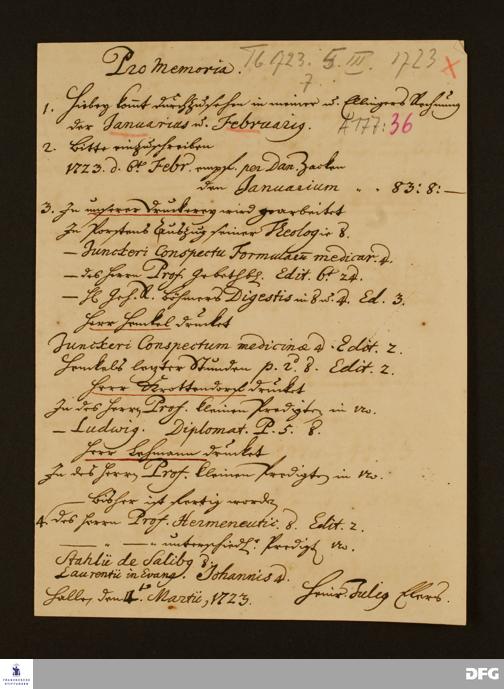 Pro Memoria.
TG 1723. 5. III. 1723
7
A 177:36
1. Hiebey komt durchzusehen in meiner u. Ellingers Rechnung
der Januarius u. Februarig.
2. Bitte einzuschreiben
1723. d. 6t Febr. empf. per Dan. Zacken
den Januarium " " 83:8:—
3. In unserer Druckerey wird gearbeitet
In Porstens Auszug seiner Theologie 8.
— Junckeri Conspectu Formularum medicar. 4.
— des Herrn Prof. Gebethb. Edit. 6t 24.
— H. Geh. R. Böhmers Digestis in 8 u. 4. Ed. 3.
Herr Henckel drucket
Junckeri Conspectum medicinæ 4. Edit. 2.
Henkels letzter Stunden p. 2. 8. Edit. 2.
Herr Krottendorf drucket
In des Herrn Prof. kleinen Predigten in 12.
— Ludwig. Diplomat. P. 5. 8.
Herr Lehmann drucket
In des Herrn Prof. kleinen Predigten in 12.
— Bisher ist fertig worden
4. des Herrn Prof. Hermeneutic. 8. Edit. 2.
— " — " unterschiedl. Predigt 12.
Stahlii de Salibg 8.
Laurentii in Evang. Johannis 4.
Halle, den 4t Martii, 1723.
Henr. Julig Elers.
FRANCKESCHE
STIFTUNGEN
DFG